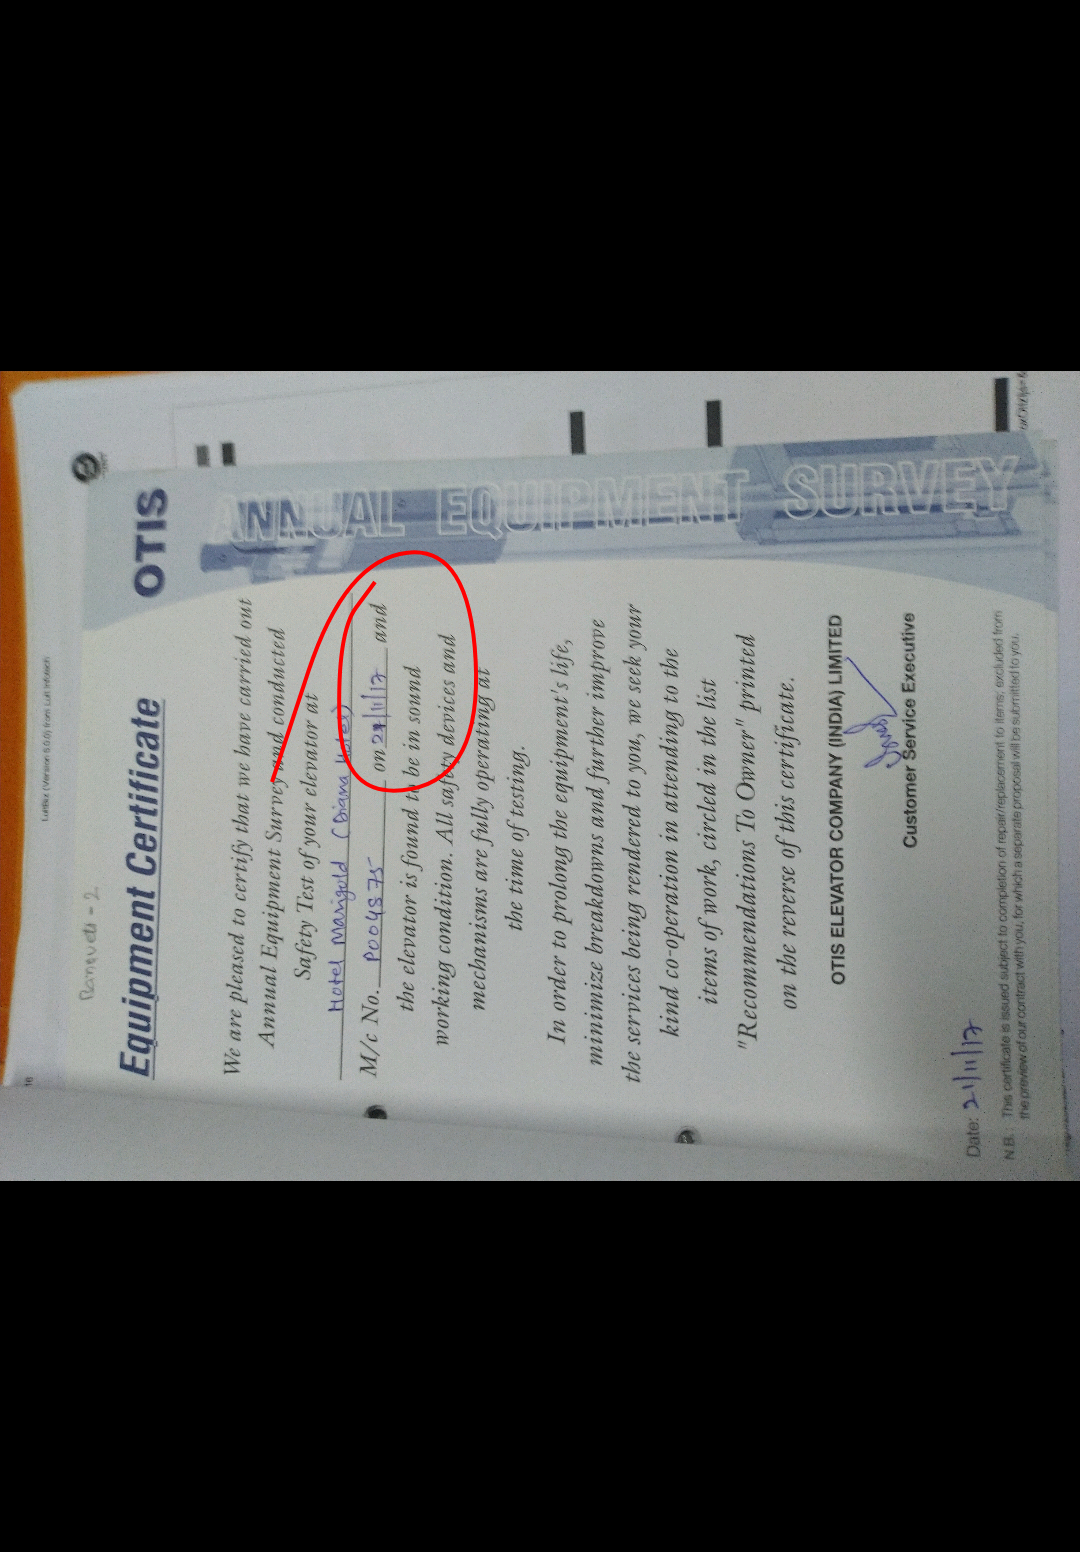 LiftBiz (Version 6.0.6) from Luit Infotech
Banquets - 2
Equipment Certificate
OTIS
ANNUAL EQUIPMENT SURVEY
We are pleased to certify that we have carried out
Annual Equipment Survey and conducted
Safety Test of your elevator at
Hotel Marigold (Diana Hotel)
M/c No. P004875 on 21/11/17 and
the elevator is found to be in sound
working condition. All safety devices and
mechanisms are fully operating at
the time of testing.
In order to prolong the equipment's life,
minimize breakdowns and further improve
the services being rendered to you, we seek your
kind co-operation in attending to the
items of work, circled in the list
"Recommendations To Owner" printed
on the reverse of this certificate.
OTIS ELEVATOR COMPANY (INDIA) LIMITED
Customer Service Executive
Date: 21/11/17
N.B. : This certificate is issued subject to completion of repair/replacement to items; excluded from
the preview of our contract with you, for which a separate proposal will be submitted to you.